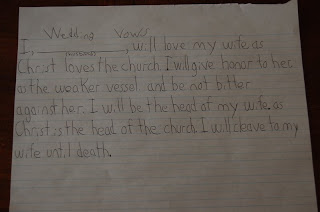 Wedding Vows
I, ________, will love my wife as
(husband)
Christ loves the church. I will give honor to her
as the weaker vessel and be not bitter
against her. I will be the head of my wife as
Christ is the head of the church. I will cleave to my
wife until death.